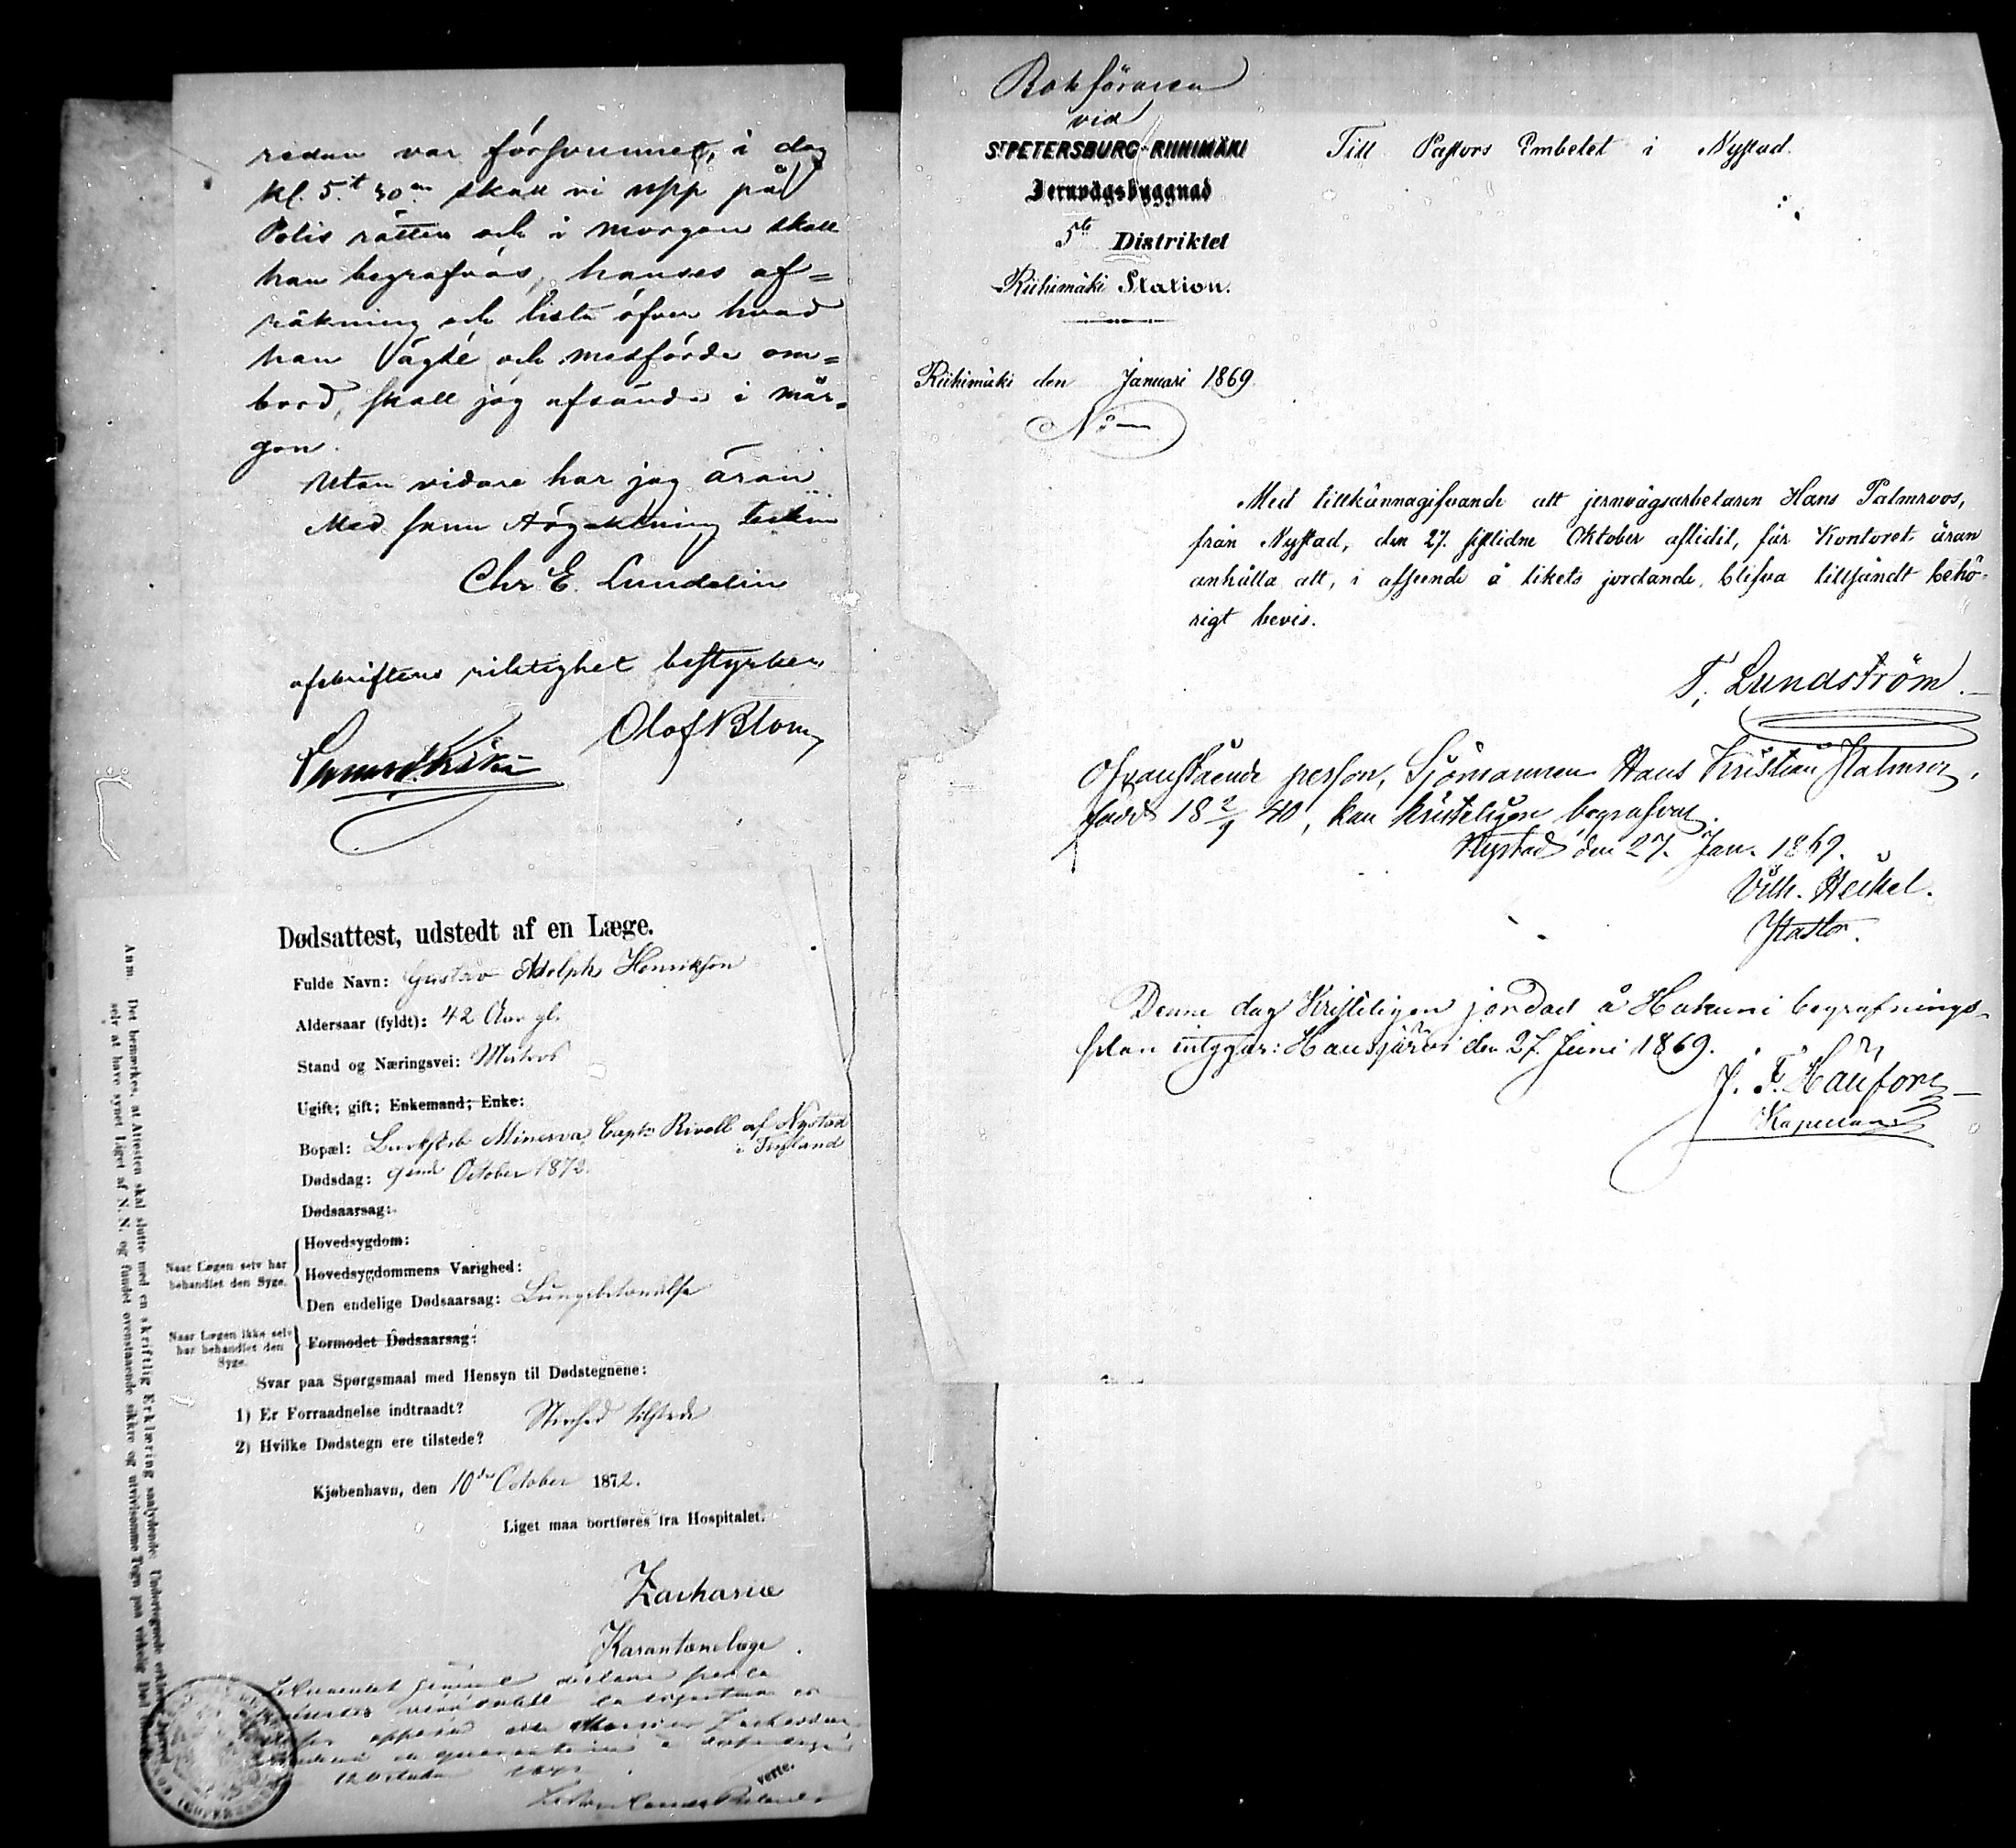 redan var försvunnet, i dag
kl. 5.t 30 m skall vi upp på
Polis rätten och i morgon skall
han begrafvas, hanses af=
räkning och lista öfver hvad
han ägde och medförde om=
bord, skall jag afsända i mår=
gon.
Utan vidare har jag äran
Med sann Högaktning teckna
Chr E. Lundelin
afskriftens riktighet bestyrker,
Olof Blom
Dødsattest, udstedt af en Læge.
Fulde Navn: Gustav Adolph Henriksson
Aldersaar (fyldt): 42 Aar gl.
Stand og Næringsvei: Matros
Ugift; gift; Enkemand; Enke:
Bopæl: Minerva, Captn Rivell af Nystad
i Finland
Dødsdag: 9ende October 1872.
Dødsaarsag:
Naar Lægen selv har
behandlet den Syge.
Hovedsygdom:
Hovedsygdommens Varighed:
Den endelige Dødsaarsag: Lungebetændelse
Naar Lægen ikke selv
har behandlet den
Syge.
Formodet Dødsaarsag:
Svar paa Spørgsmaal med Hensyn til Dødstegnene:
1) Er Forraadnelse indtraadt?
2) Hvilke Dødstegn ere tilstede? Stivhed tilstede
Kjøbenhavn, den 10de October 1872.
Liget maa bortføres fra Hospitalet.
Zachariæ
Karantænelæge.
verte.
Anm. Det bemærkes, at Attesten skal slutte med en skriftlig Erklæring saalydende: Undertegnede erklærer herved
selv at have synet Liget af N. N. og fundet ovenstaaende sikkre og utvivlsomme Tegn paa virkelig Død
Bokföraren
vid
ST PETERSBURG-RIIHIMÄKI
Jernvägsbyggnad
5te Distriktet
Riihimäki Station.
Riihimäki den Januari 1869.
No —
Till Pastors Embetet i Nystad.
Med tillkännagifvande att jernvägsarbetaren Hans Palmroos,
från Nystad, den 27. sistlidne Oktober aflidit, får Kontoret äran
anhålla att, i afseende å likets jordande, blifva tillsändt behö-
rigt bevis.
T. Lundström.
Ofvanstående person, Sjömannen Hans Kristian Palmroos,
född 18 2/9 40, kan kristeligen begrafvas.
Nystad den 27. Jan. 1869.
Vilh. Heikel.
Pastor.
Denne dag Kristeligen jordad å Hakuni begrafnings-
plan intygar: Hausjärvi den 27 Juni 1869.
J. F. Hänfors
Kapellan